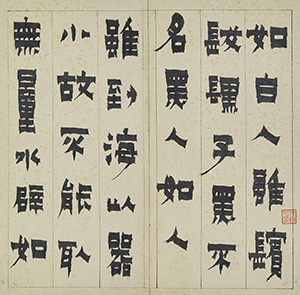 如白人雖鬢
髮子黑不
名黑人如人
雖到海以器
小故不能取
無量水譬如